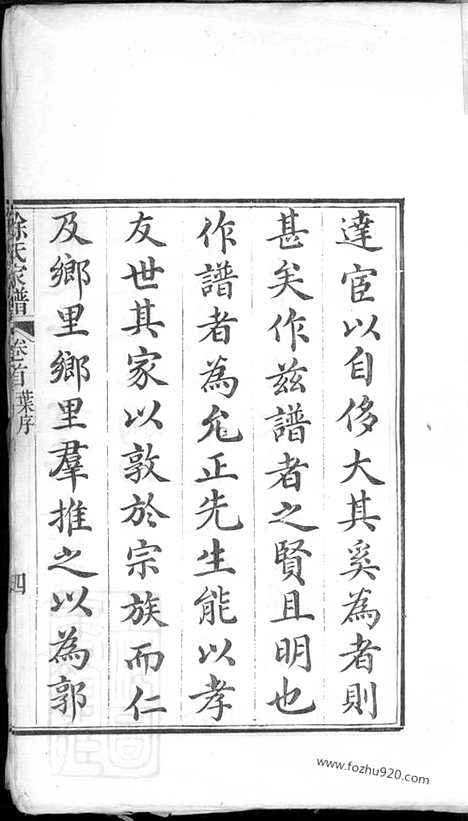 達宦以自侈大其奚為者則
甚矣作茲譜者之賢且明也
作譜者為允正先生能以孝
友世其家以敦於宗族而仁
及鄉里鄉里羣推之以為郭
徐氏家譜 卷首 葉序 四
www.fozhu920.com